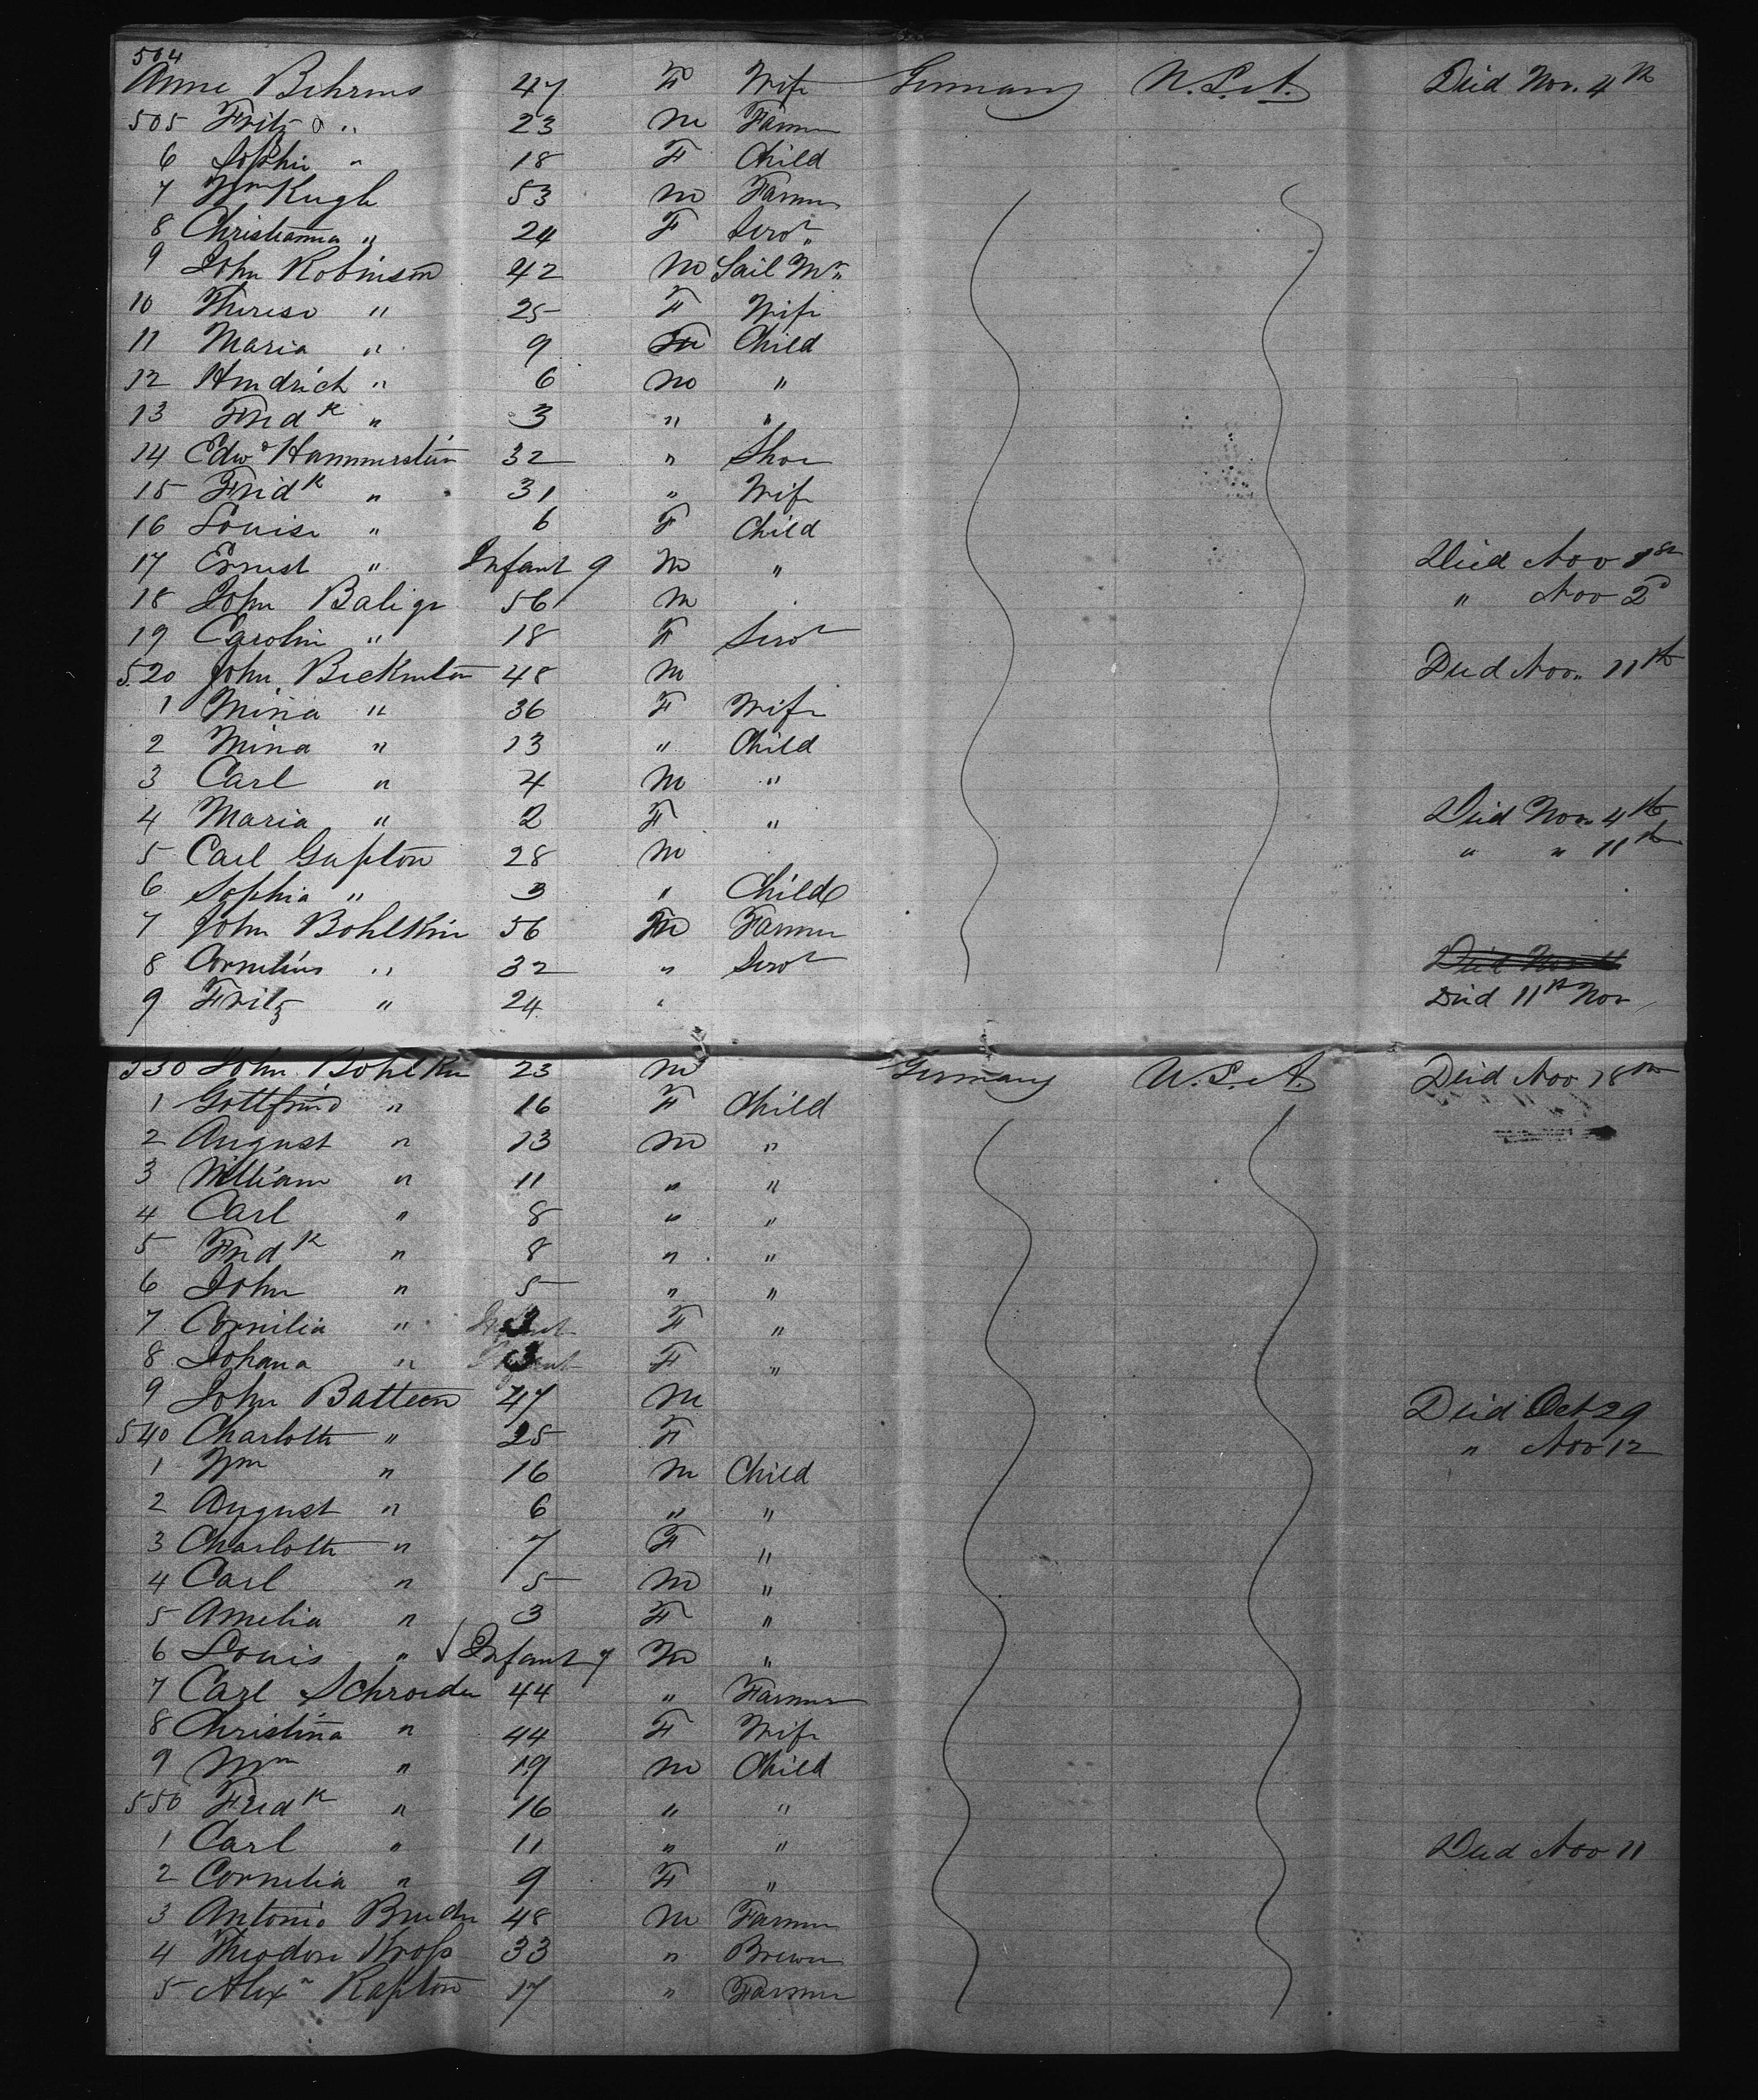 504
Anne Behrens 47 F Wife Germany U.S.A. Died Nov. 4th
505 Fritz " 23 M Farmer
6 Sophie " 18 F Child
7 Wm Kugle 53 M Farmer
8 Christianna " 24 F Servt
9 John Robinson 42 M Sail Mr
10 Therese " 25 F Wife
11 Maria " 9 F Child
12 Hendrich " 6 M "
13 Fredk " 3 " "
14 Edwd Hammerstein 32 " Shoe
15 Fredk " 31 " Wife
16 Louise " 6 F Child
17 Ernest " Infant 9 M " Died Nov 1st
18 John Balige 56 M " Nov 2d
19 Carolin " 18 F Servt
520 John Beckmeton 48 M Died Nov. 11th
1 Mina " 36 F Wife
2 Mina " 13 " Child
3 Carl " 4 M "
4 Maria " 2 F " Died Nov 4th
5 Carl Gupton 28 M " " 11th
6 Sophia " 3 " Child
7 John Bohlken 56 M Farmer
8 Cornelius " 32 " Servt Died Nov
9 Fritz " 24 " Died 11th Nov
530 John Bohlken 23 M Germany U.S.A. Died Nov 18th
1 Gottfried " 16 F Child
2 August " 13 M "
3 William " 11 " "
4 Carl " 8 " "
5 Fredk " 8 " "
6 John " 5 " "
7 Cornelia " Infant 3 F "
8 Johana " Infant 3 F "
9 John Batteen 47 M Died Oct 29
540 Charlotte " 25 F " Nov 12
1 Wm " 16 M Child
2 August " 6 " "
3 Charlotte " 7 F "
4 Carl " 5 M "
5 Amelia " 3 F "
6 Louis " √ Infant 9 M "
7 Carl Schroeder 44 " Farmer
8 Christina " 44 F Wife
9 Wm " 19 M Child
550 Fredk " 16 " "
1 Carl " 11 " " Died Nov 11
2 Cornelia " 9 F "
3 Antonio Bruder 48 M Farmer
4 Theodore Kross 33 " Brewer
5 Alexr Kapton 17 " Farmer